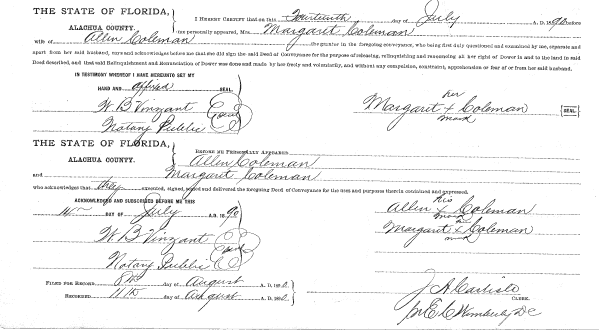 THE STATE OF FLORIDA,
ALACHUA COUNTY.
I HEREBY CERTIFY that on this Fourteenth day of July A. D. 1890 before
me personally appeared, Mrs. Margaret Coleman
wife of Allen Coleman the grantor in the foregoing conveyance, who being first duly questioned and examined by me, separate and
apart from her said husband, says and acknowledges before me that she did sign the said Deed of Conveyance for the purpose of releasing, relinquishing and renouncing all her right of Dower in and to the land in said
Deed described, and that said Relinquishment and Renunciation of Dower was done and made by her freely and voluntarily, and without any compulsion, constraint, apprehension or fear of or from her said husband.
IN TESTIMONY WHEREOF I HAVE HEREUNTO SET MY
HAND AND affixed SEAL.
W. B Vinzant
Notary Public
Seal
her
Margaret + Coleman
mark
SEAL
THE STATE OF FLORIDA,
ALACHUA COUNTY.
BEFORE ME PERSONALLY APPEARED
Allen Coleman
and Margaret Coleman
who acknowledges that they executed, signed, sealed and delivered the foregoing Deed of Conveyance for the uses and purposes therein contained and expressed.
ACKNOWLEDGED AND SUBSCRIBED BEFORE ME THIS
14th DAY OF July A. D. 1890
W. B Vinzant
Notary Public
Seal
his
Allen + Coleman
mark
Margaret + Coleman
mark
FILED FOR RECORD 8th day of August A. D. 1890
RECORDED 11th day of August A. D. 1890
J A Carlisle
CLERK.
E C
DC